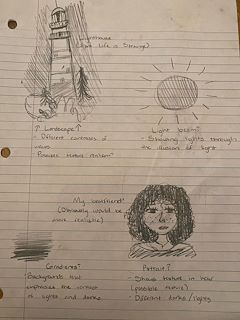 Lighthouse
(                Life is Strange)
↑ Landscape ↑
- Different contrasts of
values
- Possible texture
Light beam?
- Showing lights through
the illusion of light
My boyfriend?
(Obviously would be
more realistic)
Gradients?
Backgrounds that
emphasise the contrast
of lights and darks
Portrait?
- Shows texture in hair
(possible       )
- Different darks/lights